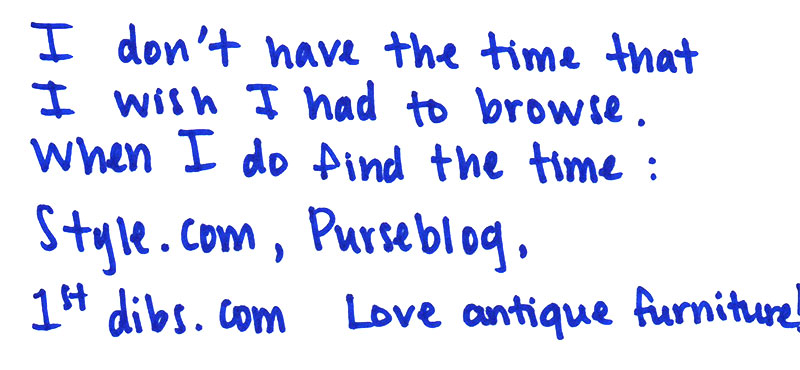 I don't have the time that
I wish I had to browse.
When I do find the time :
Style.com, Purseblog,
1st dibs.com Love antique furniture!